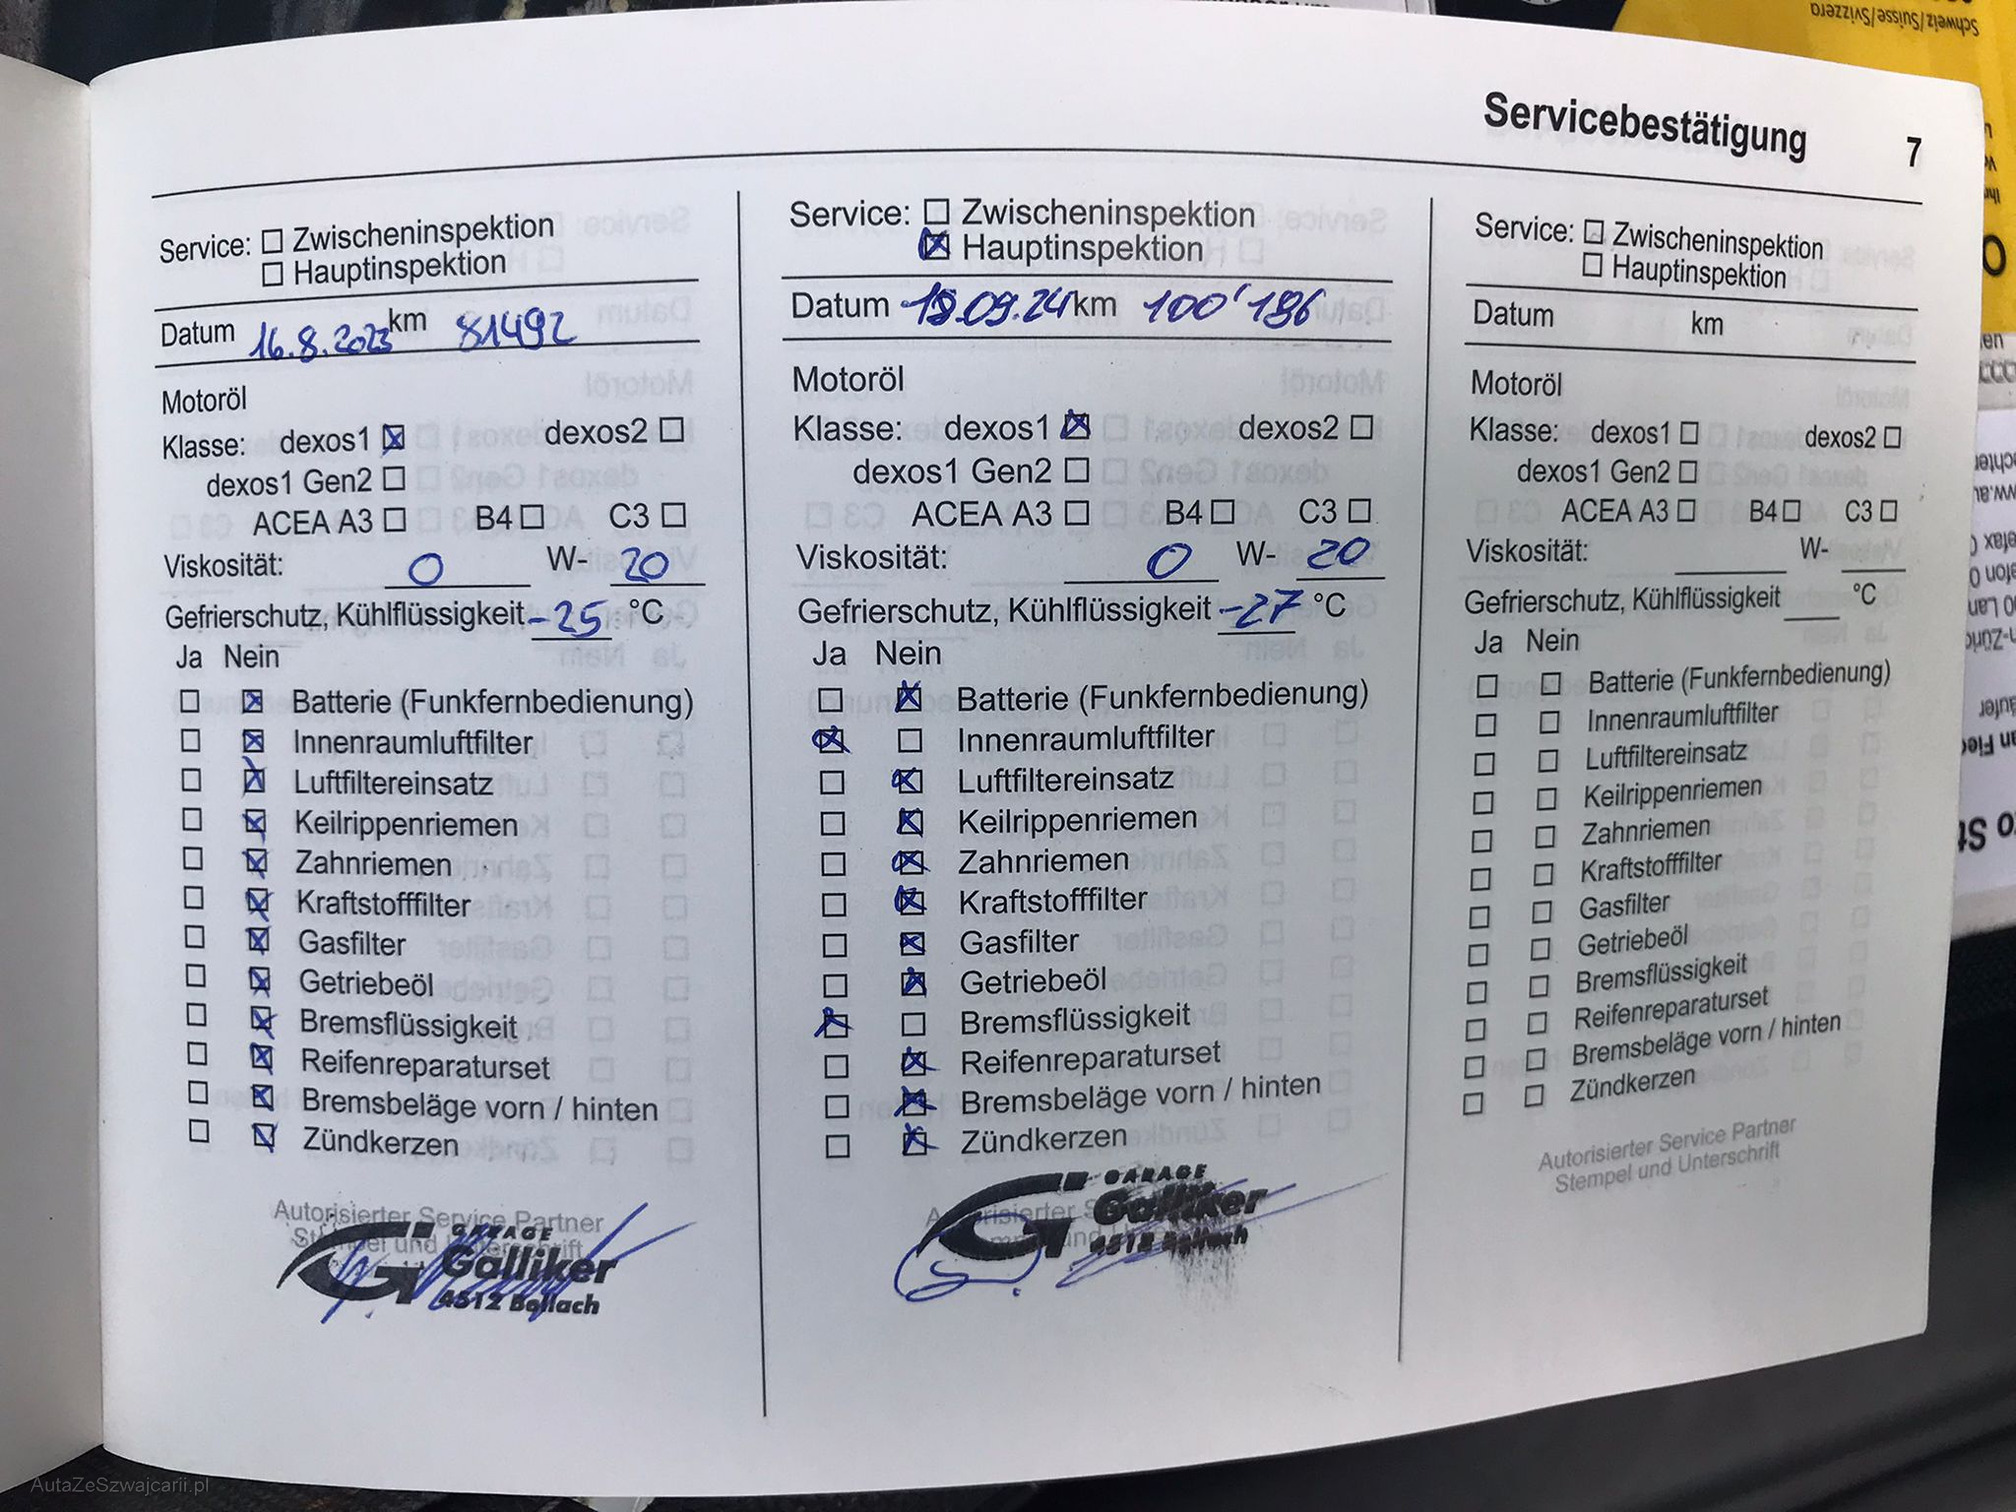 Servicebestätigung 7
Service: ☐ Zwischeninspektion
☐ Hauptinspektion
Datum 16.8.2023 km 81492
Motoröl
Klasse: dexos1 ☒ dexos2 ☐
dexos1 Gen2 ☐
ACEA A3 ☐ B4 ☐ C3 ☐
Viskosität: 0 W- 20
Gefrierschutz, Kühlflüssigkeit -25 °C
Ja Nein
☐ ☒ Batterie (Funkfernbedienung)
☐ ☒ Innenraumluftfilter
☐ ☒ Luftfiltereinsatz
☐ ☒ Keilrippenriemen
☐ ☒ Zahnriemen
☐ ☒ Kraftstofffilter
☐ ☒ Gasfilter
☐ ☒ Getriebeöl
☐ ☒ Bremsflüssigkeit
☐ ☒ Reifenreparaturset
☐ ☒ Bremsbeläge vorn / hinten
☐ ☒ Zündkerzen
Autorisierter Service Partner
Stempel und Unterschrift
GARAGE
Galliker
4512 Bellach
Service: ☐ Zwischeninspektion
☒ Hauptinspektion
Datum 19.09.24 km 100'186
Motoröl
Klasse: dexos1 ☒ dexos2 ☐
dexos1 Gen2 ☐
ACEA A3 ☐ B4 ☐ C3 ☐
Viskosität: 0 W- 20
Gefrierschutz, Kühlflüssigkeit -27 °C
Ja Nein
☐ ☒ Batterie (Funkfernbedienung)
☒ ☐ Innenraumluftfilter
☐ ☒ Luftfiltereinsatz
☐ ☒ Keilrippenriemen
☐ ☒ Zahnriemen
☐ ☒ Kraftstofffilter
☐ ☒ Gasfilter
☐ ☒ Getriebeöl
☒ ☐ Bremsflüssigkeit
☐ ☒ Reifenreparaturset
☐ ☒ Bremsbeläge vorn / hinten
☐ ☒ Zündkerzen
GARAGE
Galliker
4512 Bellach
Service: ☐ Zwischeninspektion
☐ Hauptinspektion
Datum km
Motoröl
Klasse: dexos1 ☐ dexos2 ☐
dexos1 Gen2 ☐
ACEA A3 ☐ B4 ☐ C3 ☐
Viskosität: W-
Gefrierschutz, Kühlflüssigkeit °C
Ja Nein
☐ ☐ Batterie (Funkfernbedienung)
☐ ☐ Innenraumluftfilter
☐ ☐ Luftfiltereinsatz
☐ ☐ Keilrippenriemen
☐ ☐ Zahnriemen
☐ ☐ Kraftstofffilter
☐ ☐ Gasfilter
☐ ☐ Getriebeöl
☐ ☐ Bremsflüssigkeit
☐ ☐ Reifenreparaturset
☐ ☐ Bremsbeläge vorn / hinten
☐ ☐ Zündkerzen
Autorisierter Service Partner
Stempel und Unterschrift
Schweiz/Suisse/Svizzera
AutaZeSzwajcarii.pl